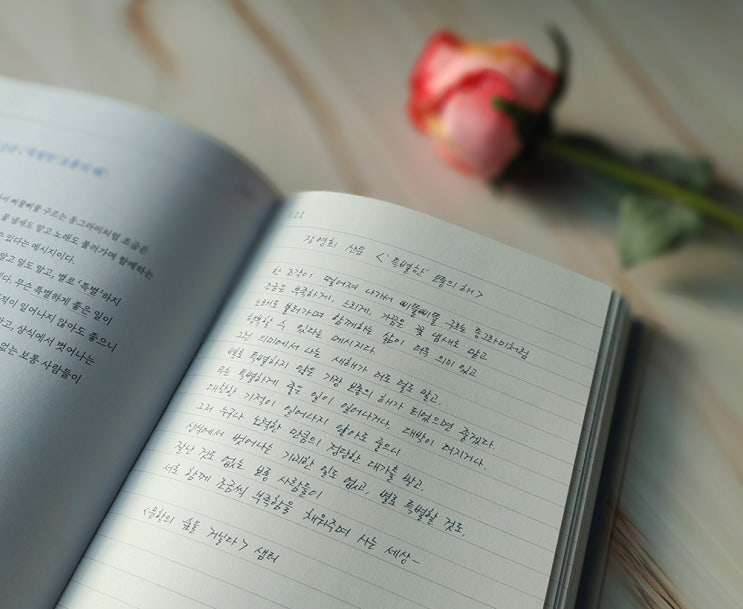 서 삐뚤삐뚤 구르는 동그라미처럼 조금은
꽃 냄새도 맡고 노래도 불러가며 함께하는
수 있다는 메시지이다.
말고 덜도 말고, 별로 '특별'하지
다. 무슨 특별하게 좋은 일이
적이 일어나지 않아도 좋으니
받고, 상식에서 벗어나는
없는 보통 사람들이
장영희 산문 <'특별한' 보통의 해>
한 조각이 떨어져 나가서 삐뚤삐뚤 구르는 동그라미처럼
조금은 부족하게, 느리게, 가끔은 꽃 냄새도 맡고
노래도 불러가며 함께하는 삶이 더욱 의미 있고
행복할 수 있다는 메시지다.
그런 의미에서 나는 새해가 더도 덜도 말고,
별로 특별하지 않은 가장 보통의 해가 되었으면 좋겠다.
무슨 특별하게 좋은 일이 일어나거나, 대박이 터지거나,
대단한 기적이 일어나지 않아도 좋으니
그저 누구나 노력한 만큼의 정당한 대가를 받고,
상식에서 벗어나는 기괴한 일도 없고, 별로 특별할 것도,
잘난 것도 없는 보통 사람들이
서로 함께 조금씩 부족함을 채워주며 사는 세상-
<문학의 숲을 거닐다> 샘터